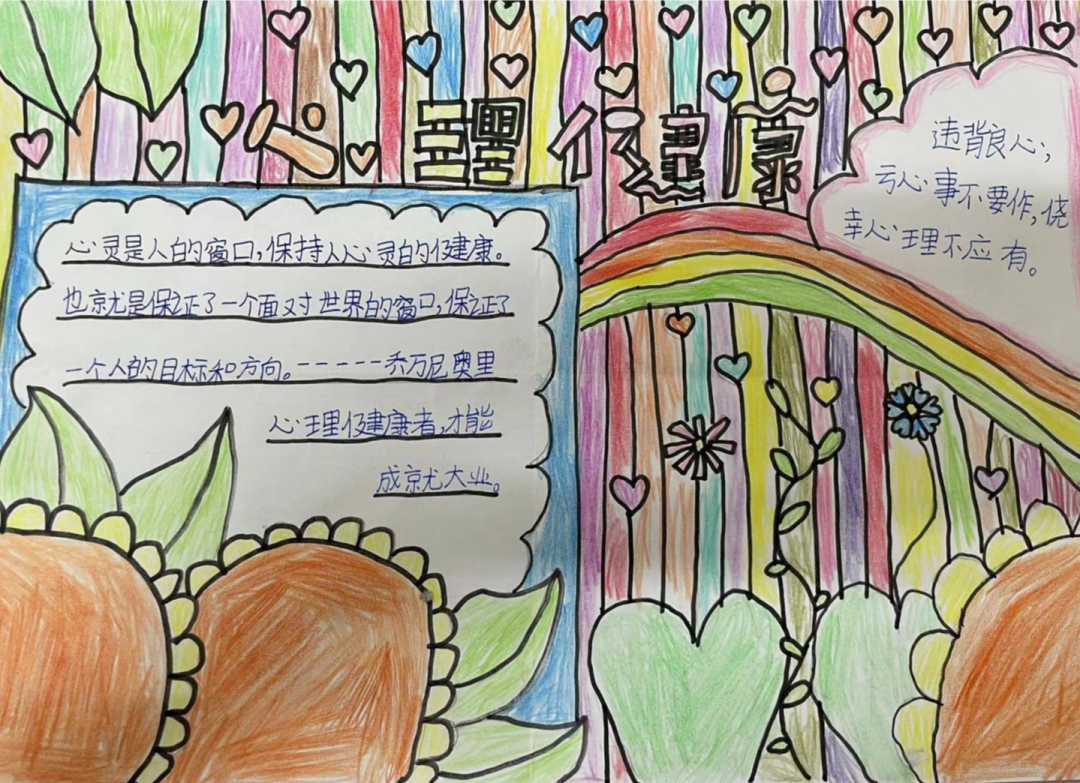 心理健康
心灵是人的窗口，保持人心灵的健康。
也就是保证了一个面对世界的窗口，保证了
一个人的目标和方向。-----乔万尼奥里
心理健康者，才能
成就大业。
违背良心，
亏心事不要作，侥
幸心理不应有。